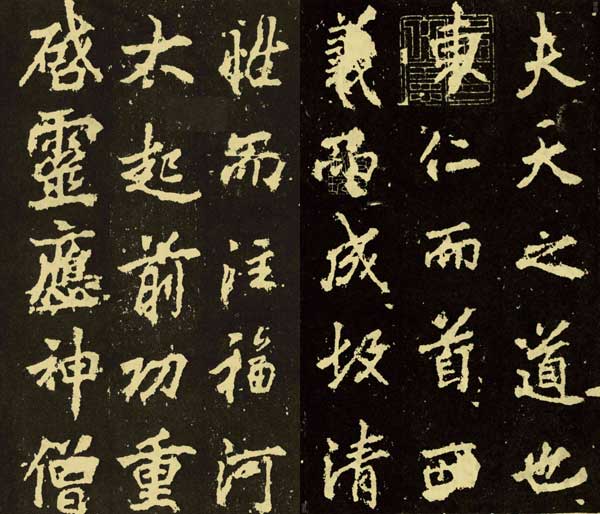 夫天之道也
東仁而首西
義而成故清
性而注福河
大起前功重
啓靈應神僧